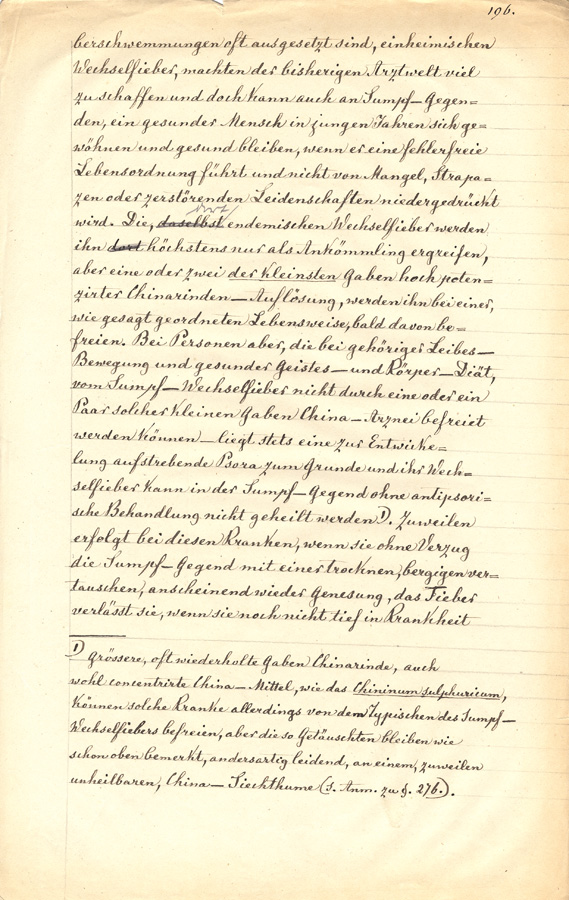 196.
berschwemmungen oft ausgesetzt sind, einheimischen
Wechselfieber, machten der bisherigen Arztwelt viel
zu schaffen und doch kann auch an Sumpf-Gegen=
den, ein gesunder Mensch in jungen Jahren sich ge=
wöhnen und gesund bleiben, wenn er eine fehlerfreie
Lebensordnung führt und nicht von Mangel, Strapa=
zen oder zerstörenden Leidenschaften niedergedrückt
dort
wird. Die, daselbst endemischen Wechselfieber werden
ihn dort höchstens nur als Ankömmling ergreifen,
aber eine oder zwei der kleinsten Gaben hoch poten=
zirter Chinarinden-Auflösung, werden ihn bei einer,
wie gesagt geordneten Lebensweise, bald davon be=
freien. Bei Personen aber, die bei gehöriger Leibes-
Bewegung und gesunder Geistes- und Körper-Diät,
vom Sumpf-Wechselfieber nicht durch eine oder ein
Paar solcher kleinen Gaben China-Arznei befreiet
werden können - liegt stets eine zur Entwicke=
lung aufstrebende Psora zum Grunde und ihr Wech=
selfieber kann in der Sumpf-Gegend ohne antipsori=
sche Behandlung nicht geheilt werden 1). Zuweilen
erfolgt bei diesen Kranken, wenn sie ohne Verzug
die Sumpf-Gegend mit einer trocknen, bergigen ver=
tauschen, anscheinend wieder Genesung, das Fieber
verlässt sie, wenn sie noch nicht tief in Krankheit
1) Grössere, oft wiederholte Gaben Chinarinde, auch
wohl concentrirte China-Mittel, wie das Chininum sulphuricum,
können solche Kranke allerdings von dem Typischen des Sumpf-
Wechselfiebers befreien, aber die so Getäuschten bleiben wie
schon oben bemerkt, andersartig leidend, an einem, zuweilen
unheilbaren, China-Siechthume (s. Anm. zu §. 276.).